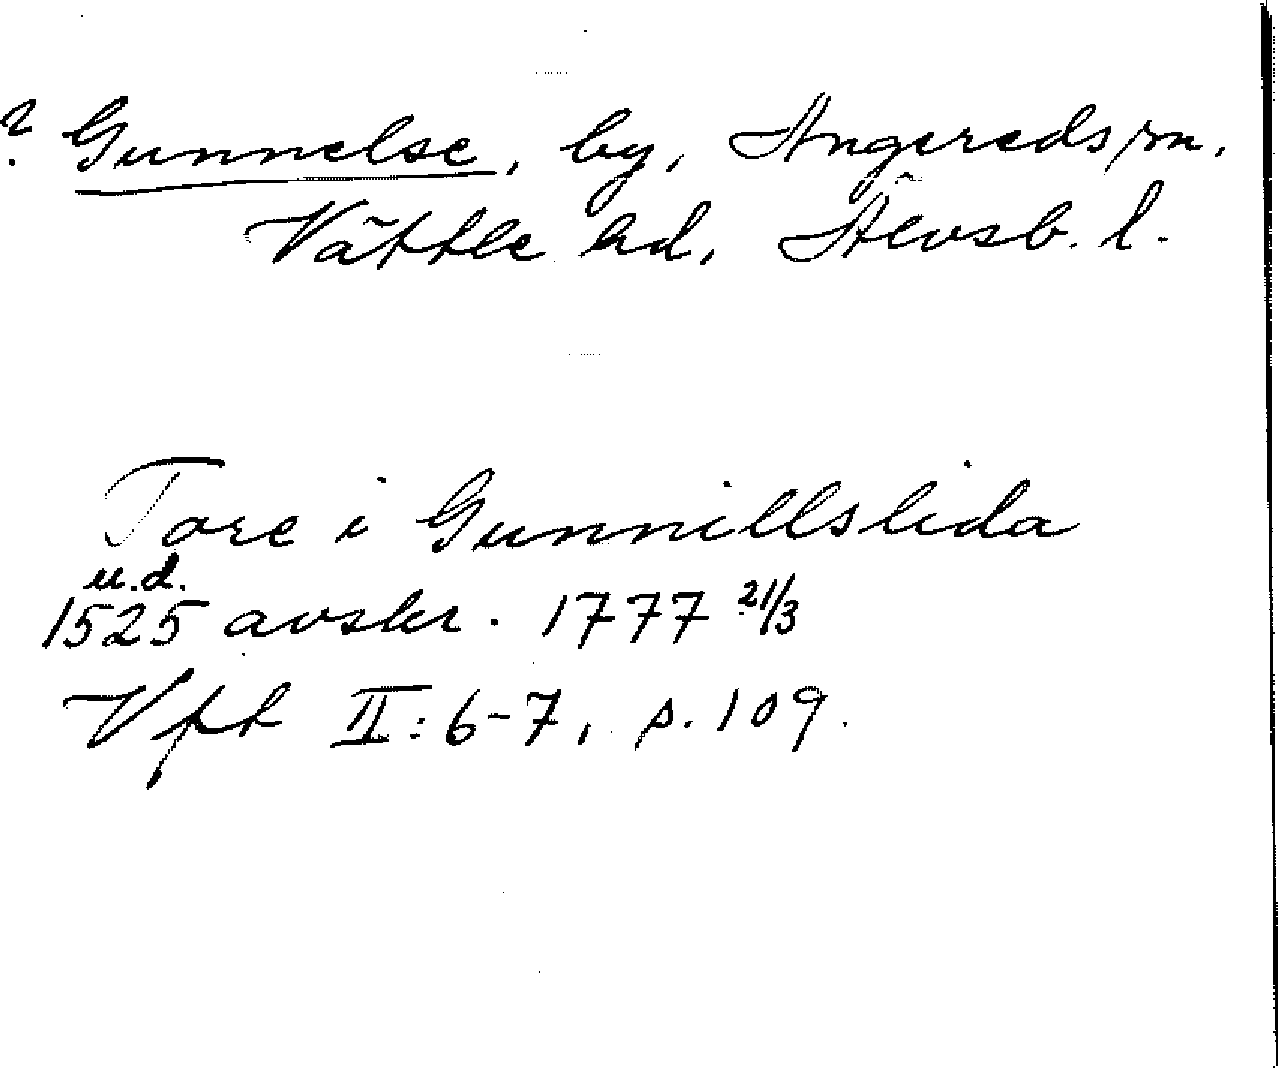 ? Gunnelse, by, Angereds sn.
Vättle hd, Älvsb. l.
Tore i Gunnillslida
u.d.
1525 avskr. 1777 21/3
Vft II: 6-7, s. 109.